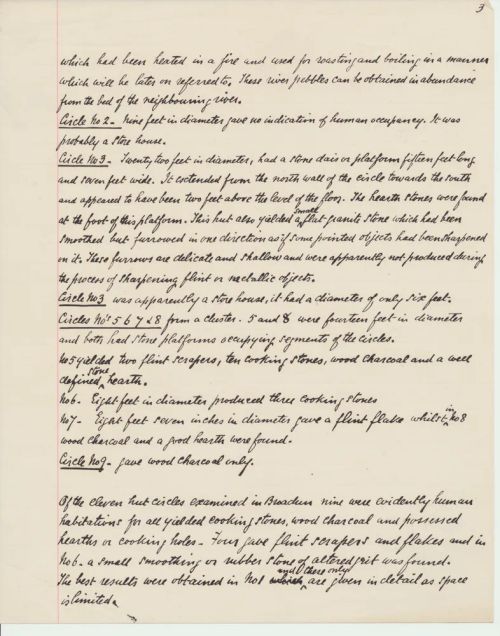 3
which had been heated in a fire and used for roasting and boiling in a manner
which will be later on referred to. These river pebbles can be obtained in abundance
from the bed of the neighbouring river.
Circle No 2 - Nine feet in diameter gave no indication of human occupancy. It was
probably a store house.
Circle No 3 - Twenty two feet in diameter, had a stone dais or platform fifteen feet long
and seven feet wide. It extended from the north wall of the circle towards the south
and appeared to have been two feet above the level of the floor. The hearth stones were found
at the foot of this platform. This hut also yielded a small flat granite stone which had been
smoothed but furrowed in one direction as if some pointed objects had been sharpened
on it. These furrows are delicate and shallow and were apparently not produced during
the process of sharpening flint or metallic objects.
Circle No 3 was apparently a store house, it had a diameter of only six feet.
Circles Nos 5 6 7 & 8 form a cluster. 5 and 8 were fourteen feet in diameter
and both had stone platforms occupying segments of the circles.
No 5 yielded two flint scrapers, ten cooking stones, wood charcoal and a well
defined stone hearth.
No 6 - Eight feet in diameter produced three cooking stones
No 7 - Eight feet seven inches in diameter gave a flint flake whilst in No 8
wood charcoal and a good hearth were found.
Circle No 9 - gave wood charcoal only.
Of the eleven hut circles examined in Broadun nine were evidently human
habitations for all yielded cooking stones, wood charcoal and possessed
hearths or cooking holes - Four gave flint scrapers and flakes and in
No 6 - a small smoothing or rubber stone of altered grit was found.
The best results were obtained in No 1 which and these only are given in detail as space
is limited.